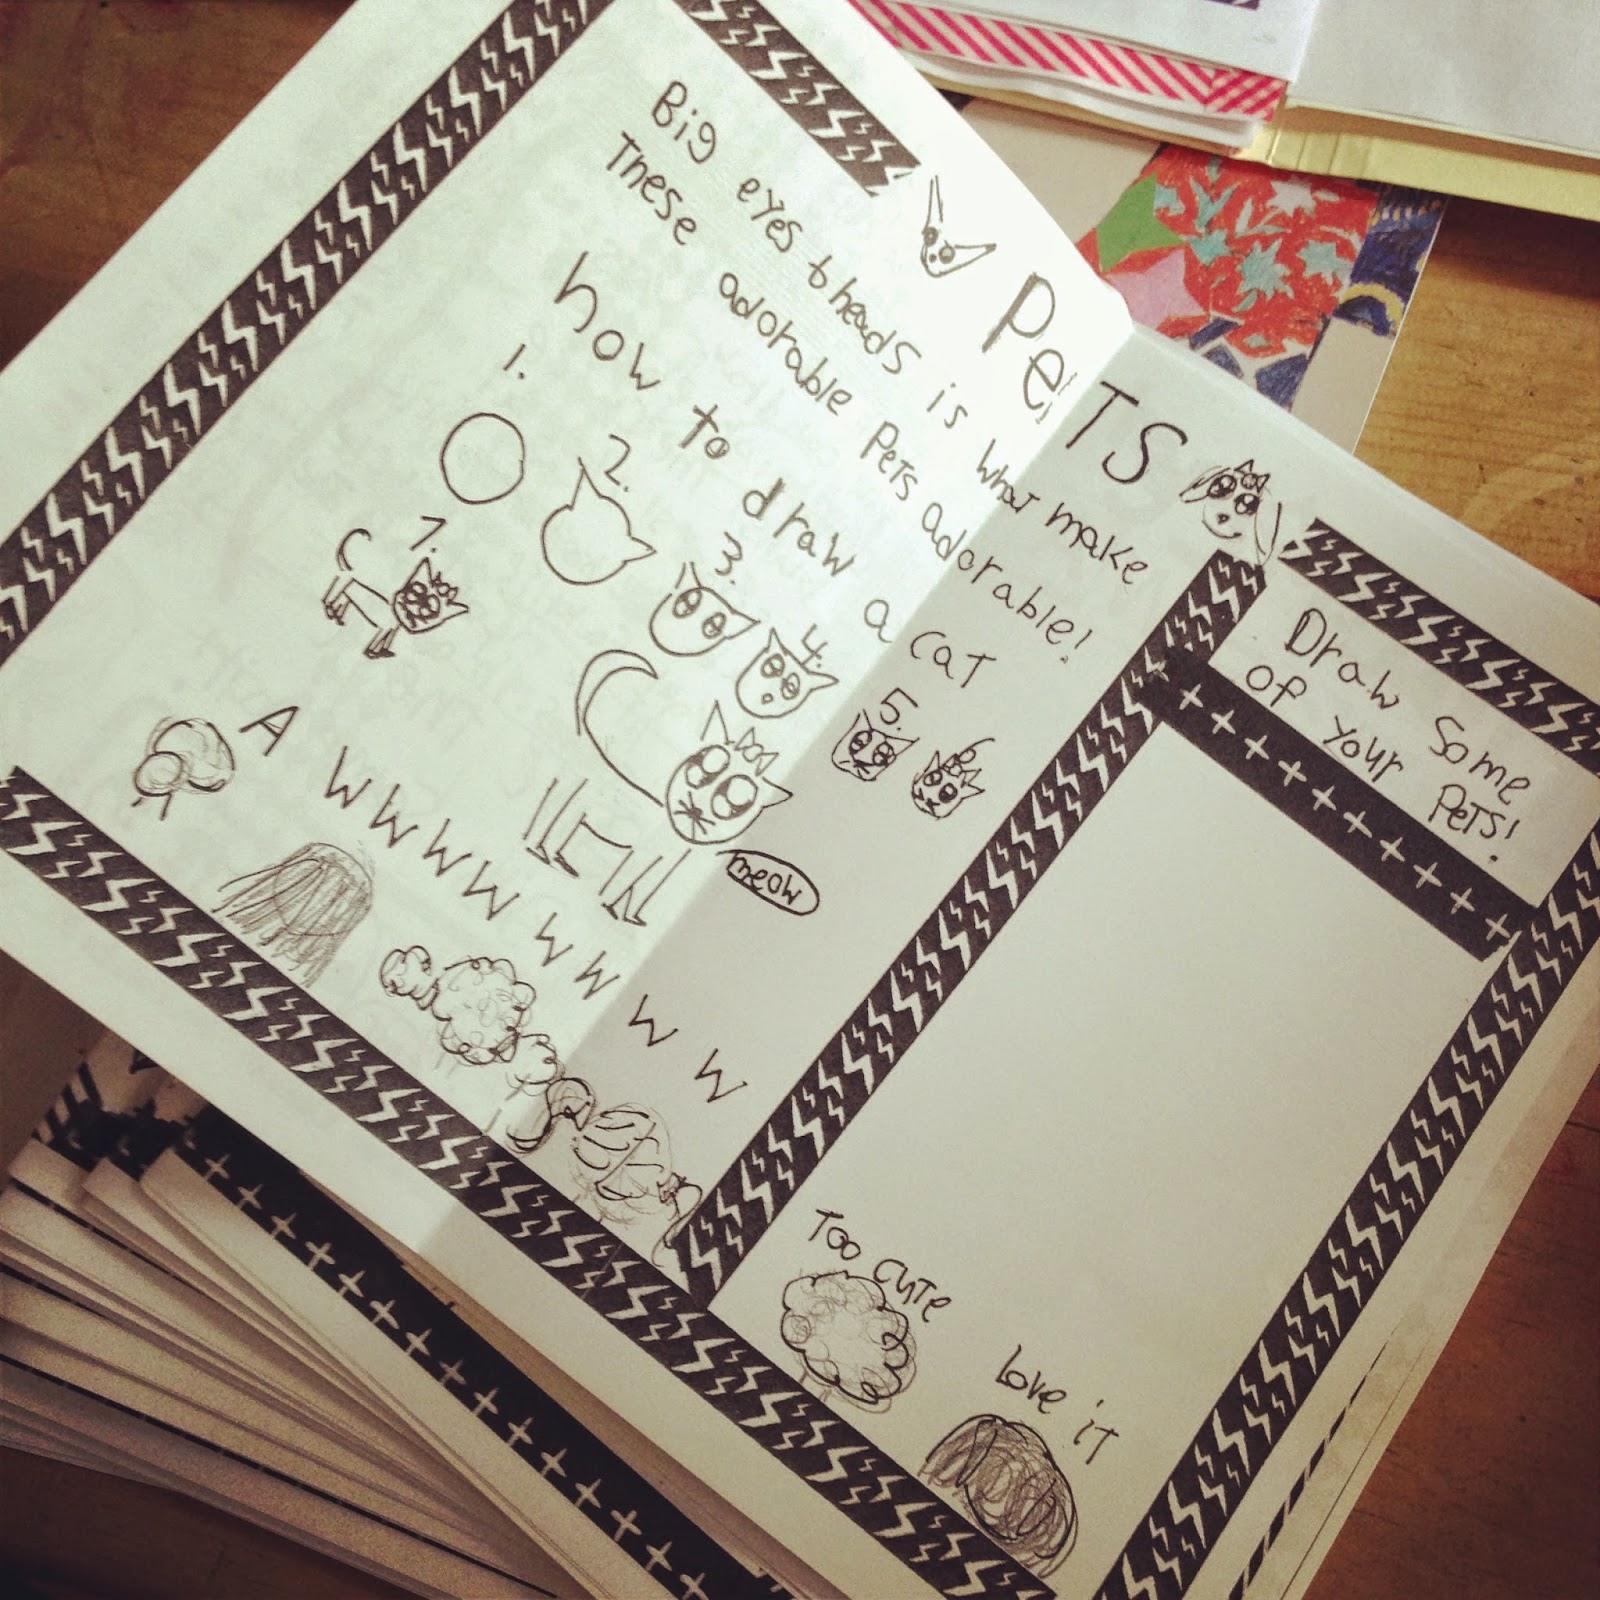 PeTS
Big eyes & heads is what make
These adorable Pets adorable!
how to draw a cat
1.
2.
3.
4.
5.
6
7.
meow
A W W W W W W W W
Draw Some
of your
Pets!
Too cute
love it